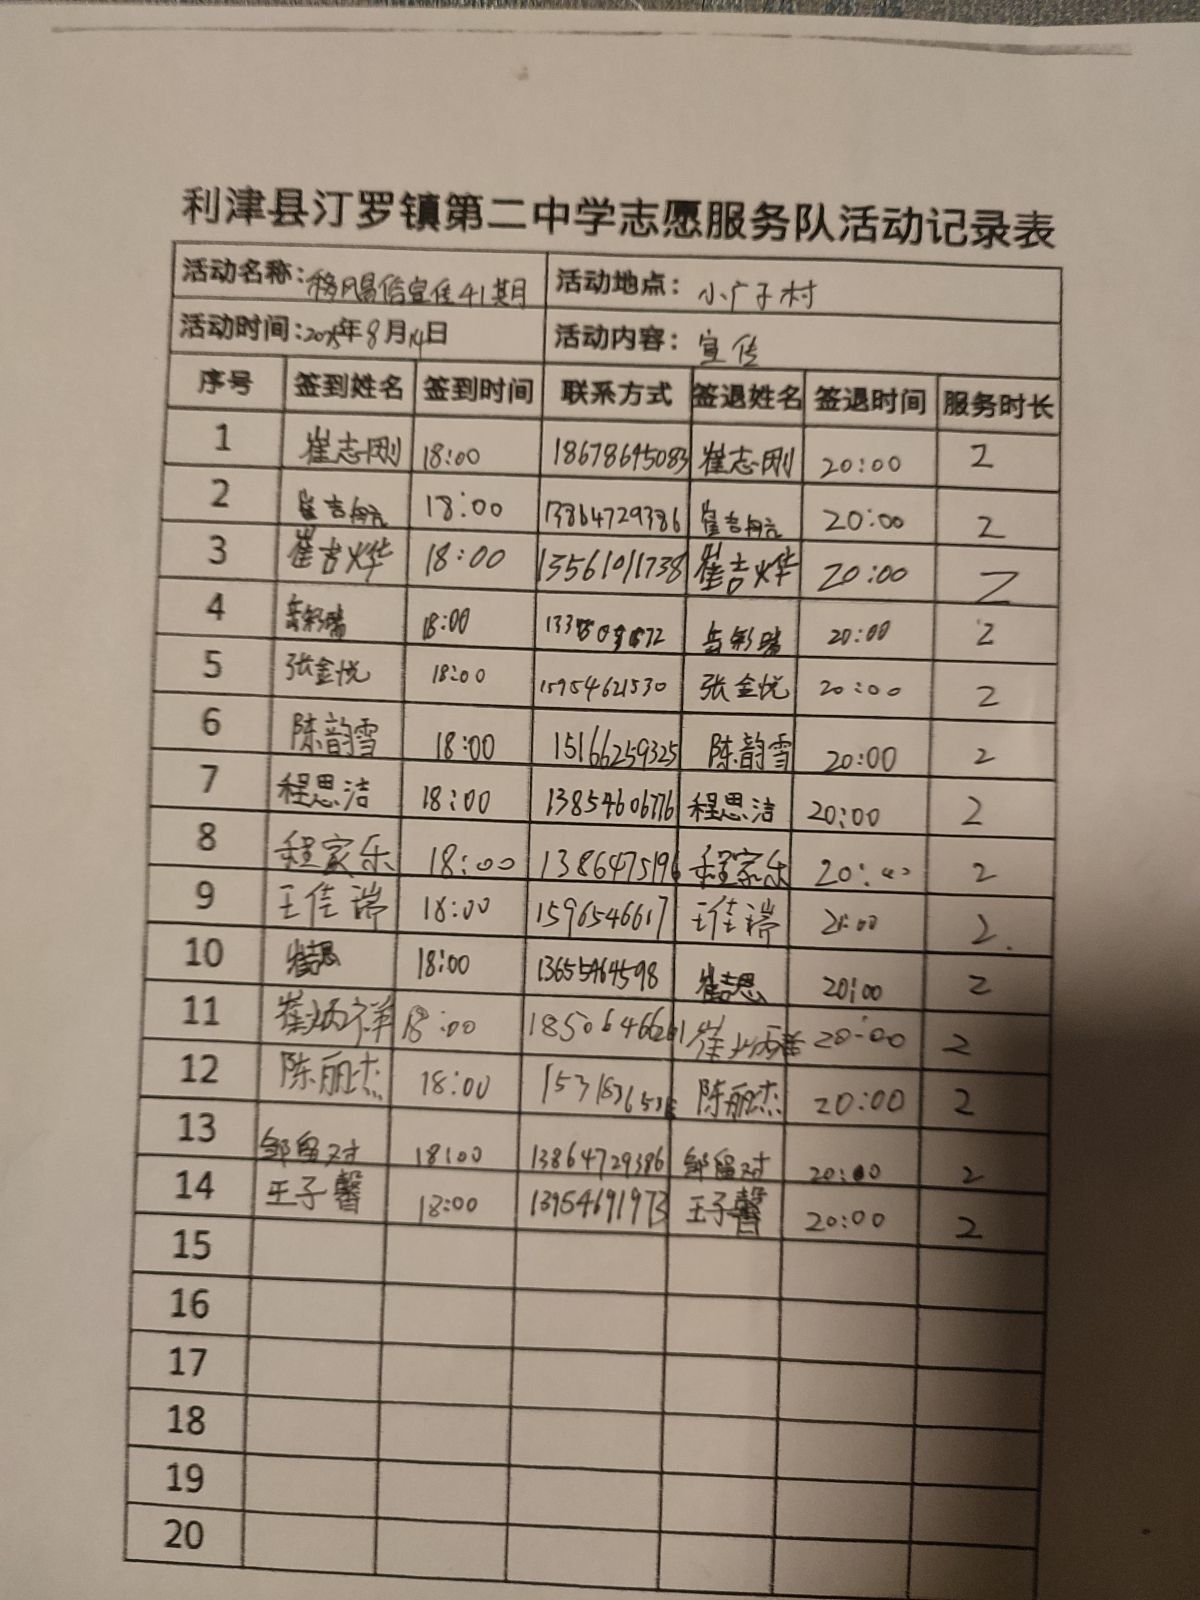 利津县汀罗镇第二中学志愿服务队活动记录表
活动名称：移风易俗宣传41期 活动地点：小广子村
活动时间：2025年8月14日 活动内容：宣传
序号 签到姓名 签到时间 联系方式 签退姓名 签退时间 服务时长
1 崔志刚 18:00 18678645083 崔志刚 20:00 2
2 崔吉航 18:00 13864729386 崔吉航 20:00 2
3 崔吉烨 18:00 13561011738 崔吉烨 20:00 2
4 岳彩瑞 18:00 岳彩瑞 20:00 2
5 张金悦 18:00 15954621530 张金悦 20:00 2
6 陈韵雪 18:00 15166259325 陈韵雪 20:00 2
7 程思洁 18:00 13854606776 程思洁 20:00 2
8 程家乐 18:00 1386475196 程家乐 20:00 2
9 王佳瑞 18:00 1596546617 王佳瑞 20:00 2
10 崔吉思 18:00 13655464598 崔吉思 20:00 2
11 崔炳祥 18:00 崔炳祥 20:00 2
12 陈丽杰 18:00 陈丽杰 20:00 2
13 邹留对 18:00 13864729386 邹留对 20:00 2
14 王子馨 18:00 13954691973 王子馨 20:00 2
15
16
17
18
19
20